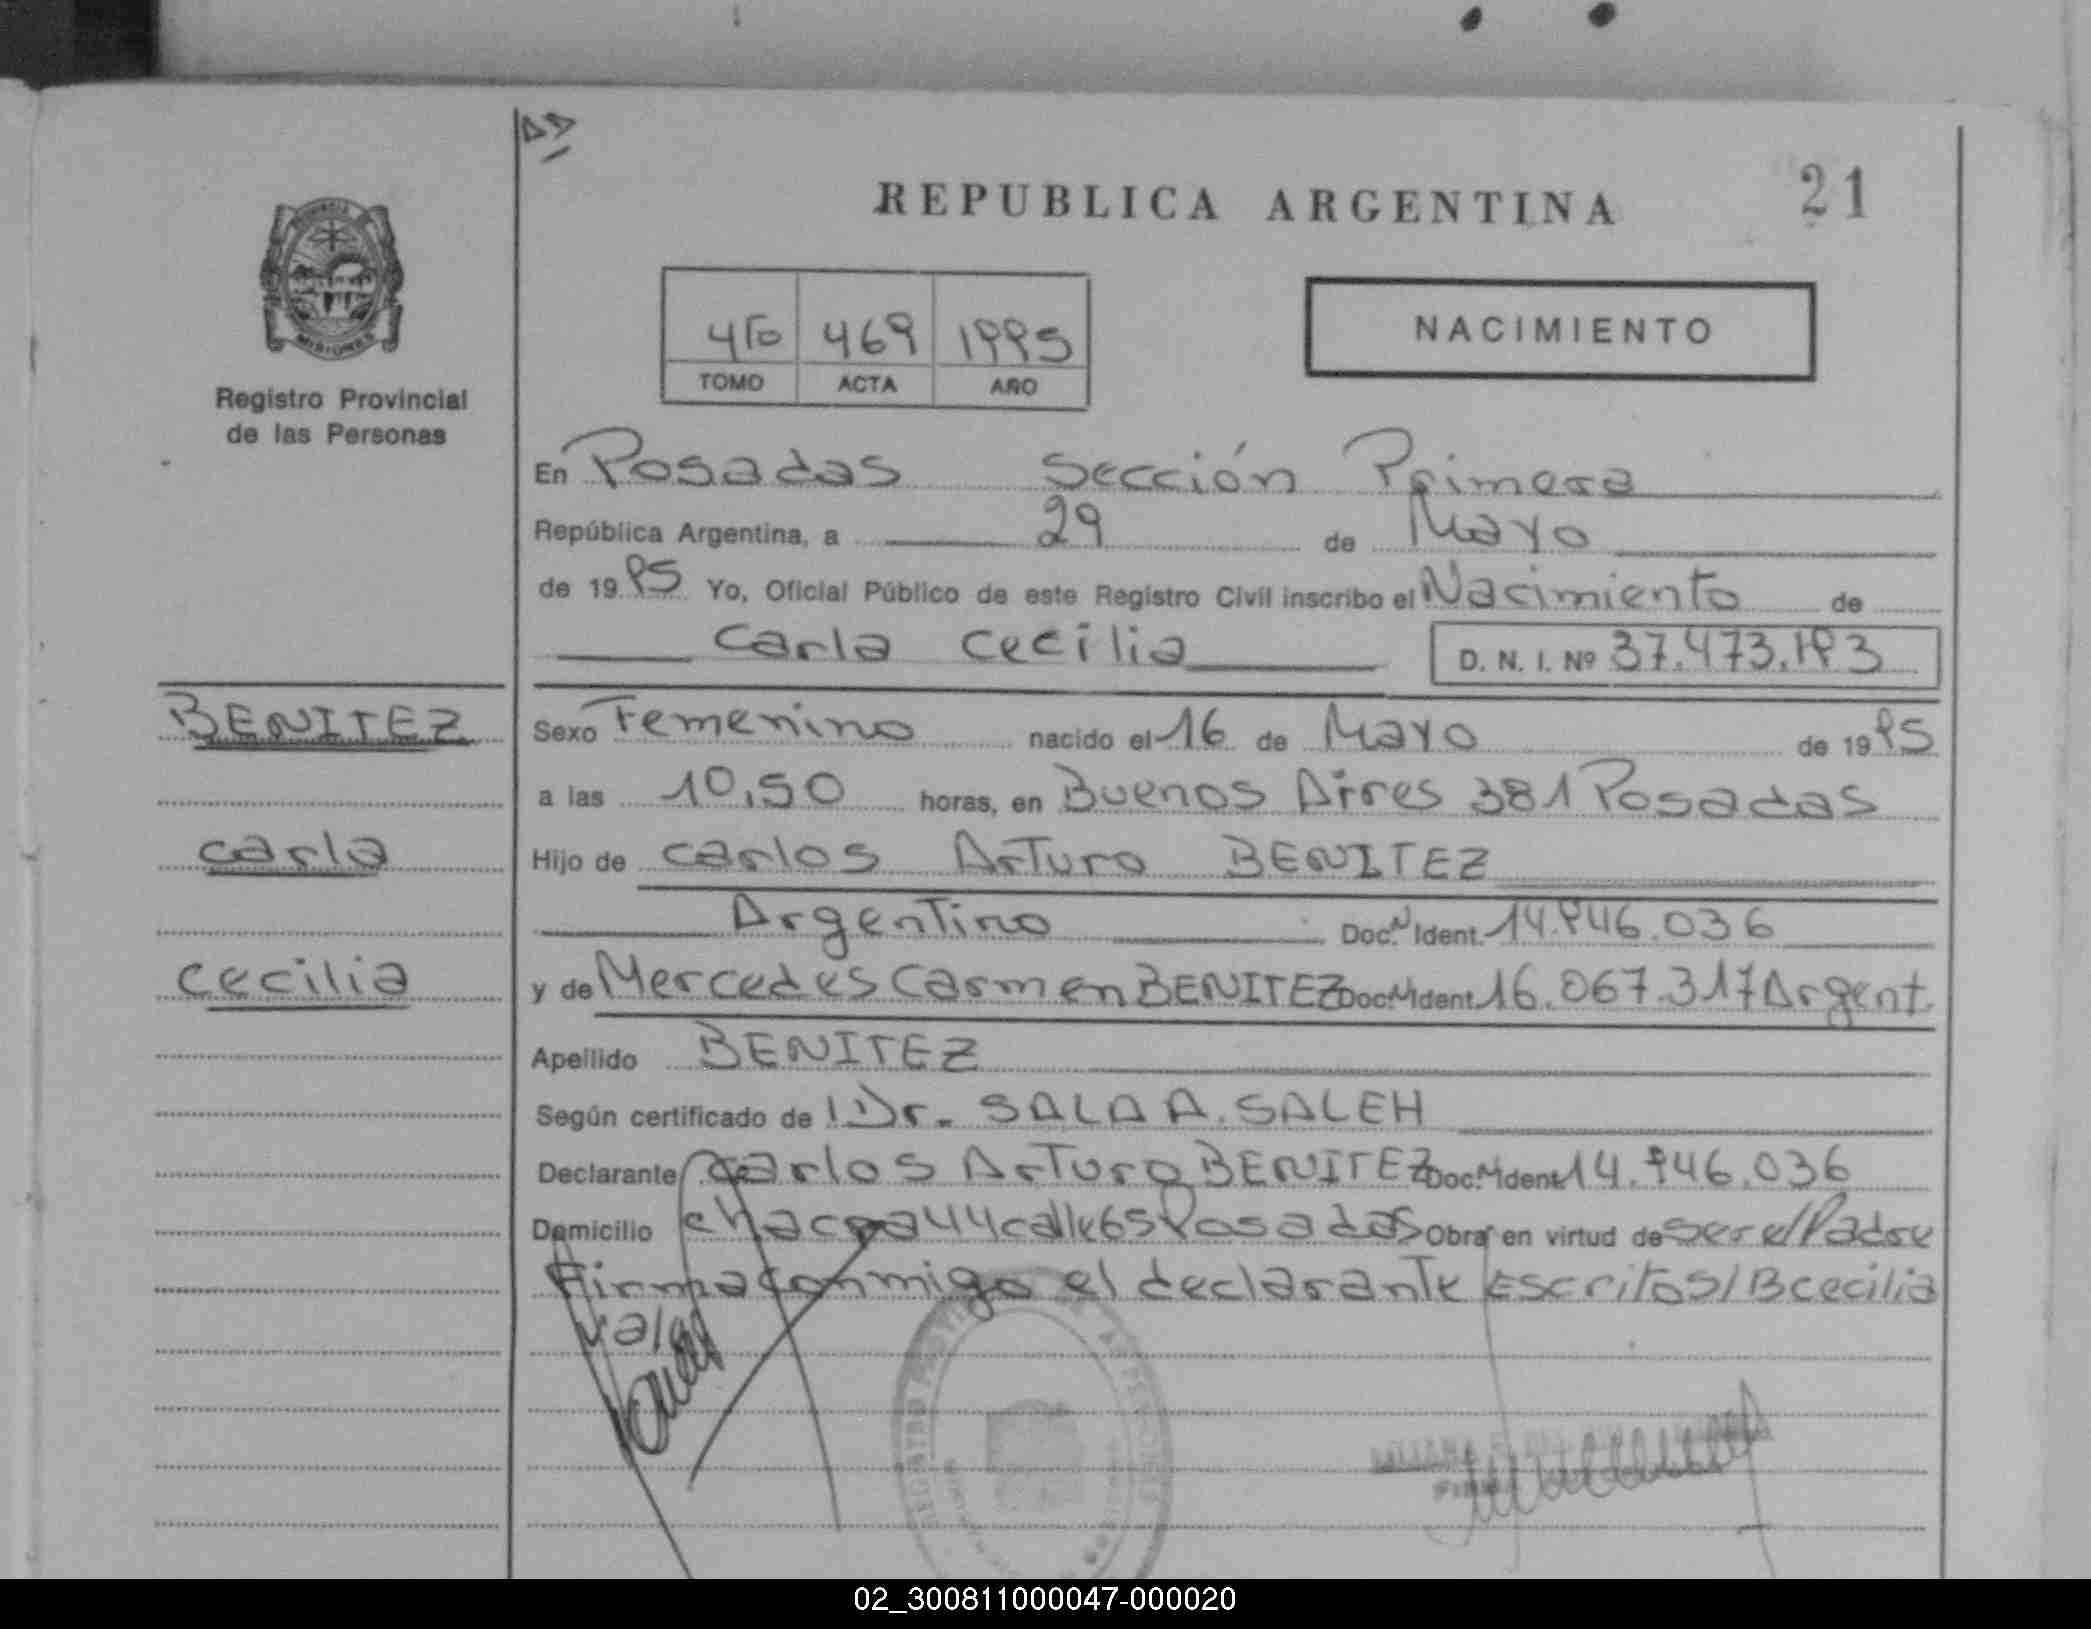 REPUBLICA ARGENTINA
21
MISIONES
Registro Provincial
de las Personas
4to 469 1995
TOMO ACTA AÑO
NACIMIENTO
En Posadas Sección Primera
República Argentina, a 29 de Mayo
de 1995 Yo, Oficial Público de este Registro Civil inscribo el Nacimiento de
Carla Cecilia D. N. I. Nº 37.473.193
BENITEZ
Carla
Cecilia
Sexo Femenino nacido el 16 de Mayo de 1995
a las 10,50 horas, en Buenos Aires 381 Posadas
Hijo de Carlos Arturo BENITEZ
Argentino Doc. N Ident. 14.946.036
y de Mercedes Carmen BENITEZ Doc. N Ident. 16.067.317 Argent.
Apellido BENITEZ
Según certificado de Dr. SALA A. SALEH
Declarante Carlos Arturo BENITEZ Doc. N Ident. 14.946.036
Domicilio chacra 44 calle 65 Posadas Obra en virtud de ser el Padre
Firma conmigo el declarante Escritos/B cecilia
Vale
02_300811000047-000020